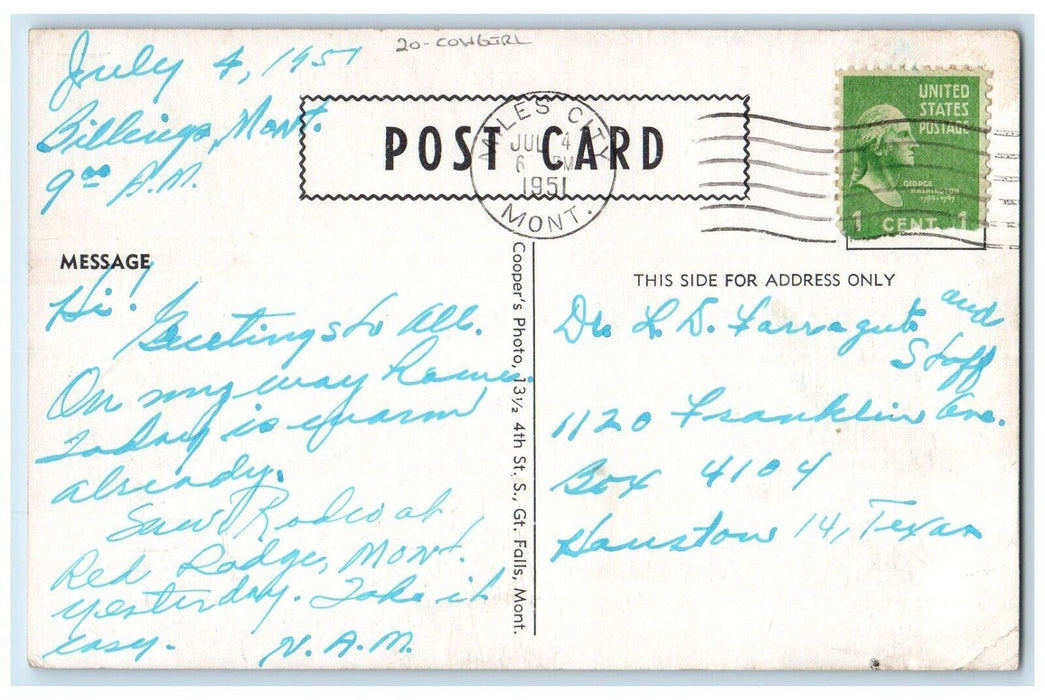 20-COWGIRL
July 4, 1951
Billings, Mont.
9⁰⁰ A.M.
POST CARD
MILES CITY
JUL 4
6 PM
1951
MONT.
UNITED
STATES
POSTAGE
GEORGE
WASHINGTON
1789-1797
1 CENT 1
MESSAGE
Hi!
Greetings to All.
On my way home.
Today is warm
already.
Saw Rodeo at
Red Lodge, Mont.
yesterday. Take it
easy. N.A.M.
Cooper's Photo, 13½ 4th St. S., Gt. Falls, Mont.
THIS SIDE FOR ADDRESS ONLY
Dr. L. D. Farragut and
Staff
1120 Franklin Ave.
Box 4104
Houston 14, Texas